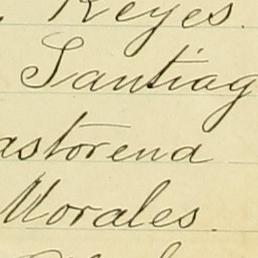 . Reyes.
Santiag
astorena
Morales.